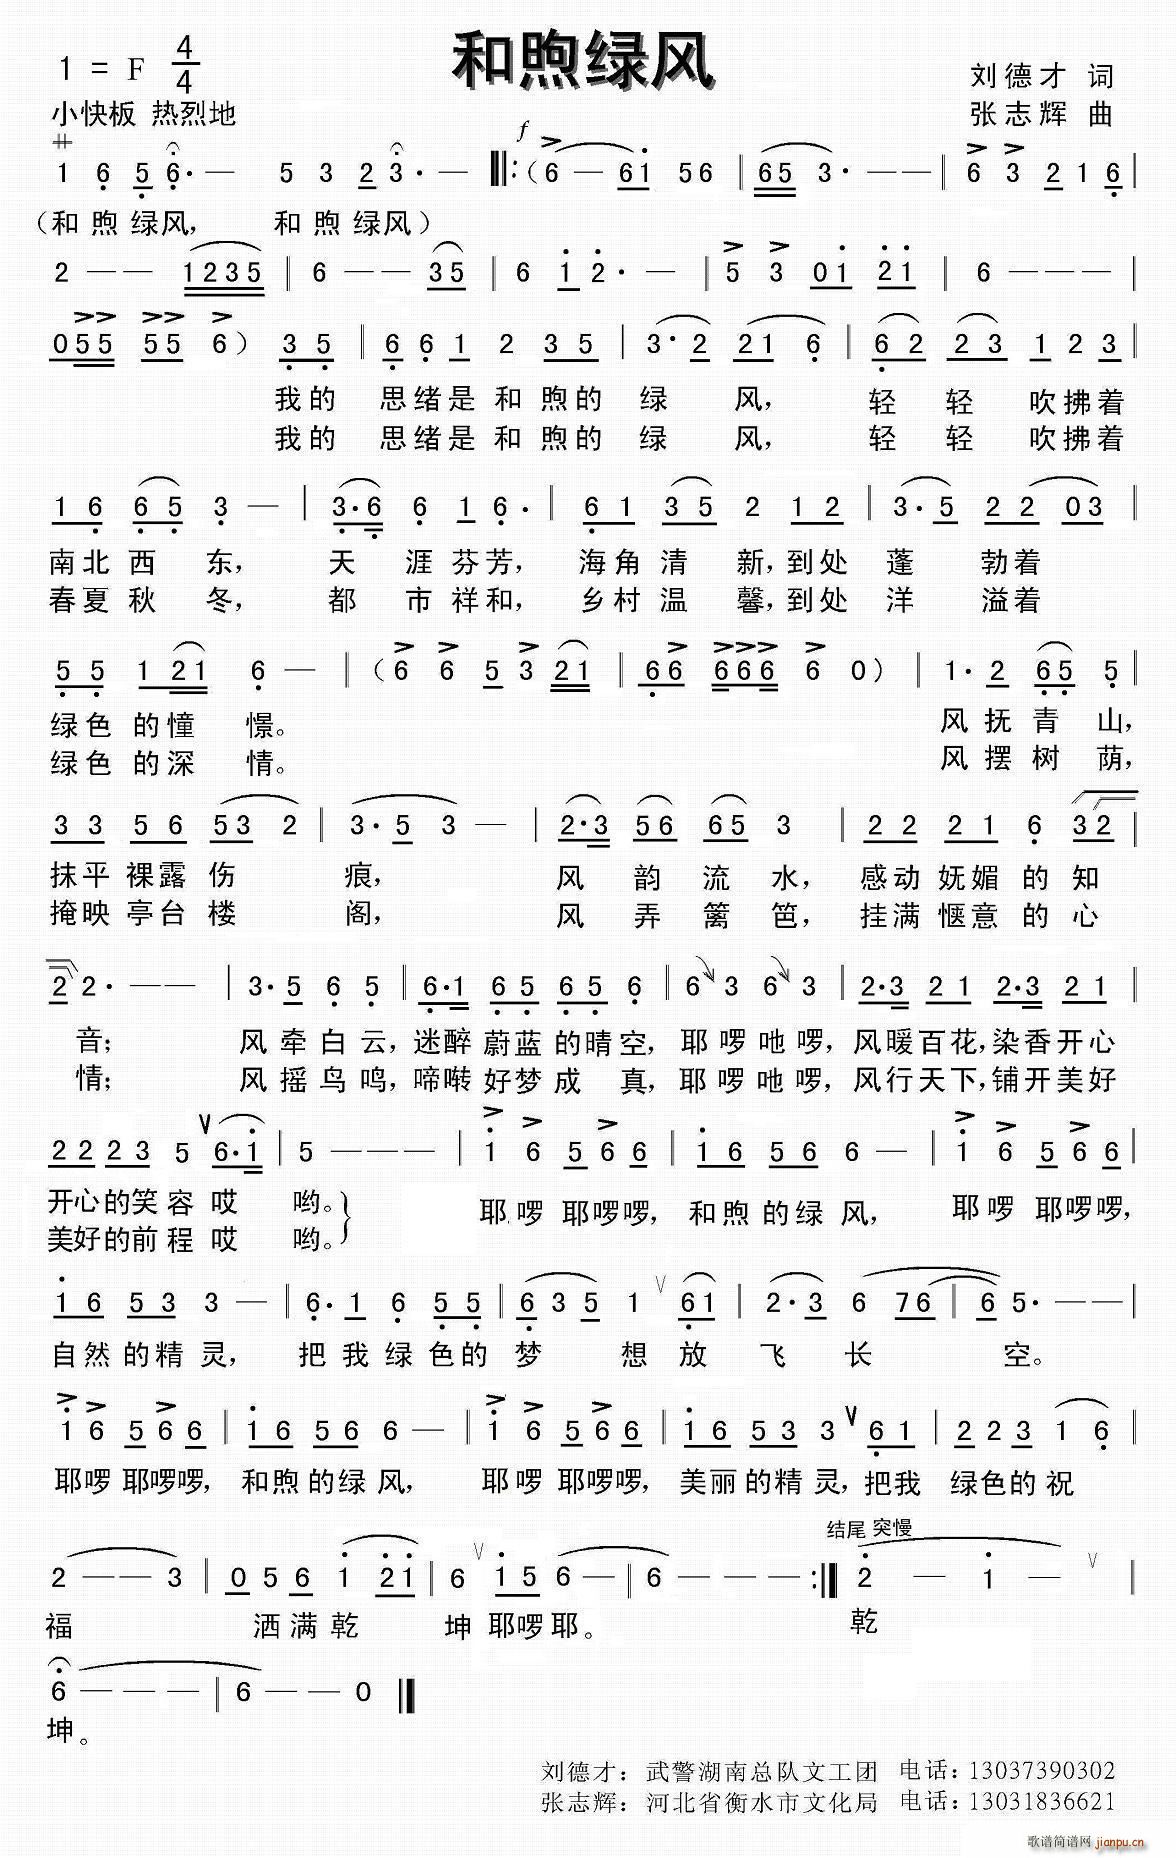 和煦绿风
1 = F 4/4
刘德才 词
小快板 热烈地
张志辉 曲
f
1 6 5 6· — 5 3 2 3· — ‖: (6 — 6i 56 | 65 3· — — | 6 3 2 1 6 |
（和 煦 绿风， 和 煦 绿风）
2 — — 1235 | 6 — — 35 | 6 i 2· — | 5 3 0i 2i | 6 — — — |
055 55 6) 3 5 | 6 6 1 2 35 | 3·2 21 6 | 62 23 1 2 3 |
我的 思绪是和 煦的 绿 风， 轻 轻 吹拂着
我的 思绪是和 煦的 绿 风， 轻 轻 吹拂着
16 65 3 — | 3·6 6 1 6· | 61 35 2 12 | 3·5 22 03 |
南北 西 东， 天 涯 芬芳， 海角 清 新，到处 蓬 勃着
春夏 秋 冬， 都 市 祥和， 乡村 温 馨，到处 洋 溢着
55 121 6 — | (6 6 5 3 21 | 66 666 6 0) | 1·2 65 5 |
绿色 的憧 憬。 风 抚 青 山，
绿色 的深 情。 风 摆 树 荫，
33 56 53 2 | 3·5 3 — | 2·3 56 65 3 | 22 21 6 32 |
抹平 裸露 伤 痕， 风 韵 流 水， 感动 妩媚 的 知
掩映 亭台 楼 阁， 风 弄 篱 笆， 挂满 惬意 的 心
2 2· — — | 3·5 6 5 | 6·1 65 65 6 | 6 3 6 3 | 2·3 21 2·3 21 |
音； 风 牵 白 云，迷醉 蔚蓝 的晴 空，耶 啰 吔 啰，风暖百花，染香开心
情； 风 摇 鸟 鸣，啼啭 好梦 成 真，耶 啰 吔 啰，风行天下，铺开美好
22 23 5 6·i | 5 — — — | i 6 5 6 6 | i6 56 6 — | i 6 5 6 6 |
开心的笑 容 哎 哟。} 耶 啰 耶啰啰， 和煦 的绿 风， 耶啰 耶啰啰，
美好的前 程 哎 哟。}
i6 53 3 — | 6·1 6 55 | 6 3 5 1 61 | 2·3 6 76 | 6 5· — — |
自然 的精 灵， 把 我 绿 色的 梦 想 放 飞 长 空。
i 6 5 6 6 | i6 56 6 — | i 6 5 6 6 | i6 53 3 61 | 2 2 3 1 6 |
耶啰 耶啰啰， 和煦 的绿 风， 耶啰 耶啰啰， 美丽 的精 灵，把我 绿色的 祝
结尾 突慢
2 — — 3 | 0 5 6 i 2i | 6 i5 6 — | 6 — — — :‖ 2 — i — |
福 洒 满 乾 坤 耶啰 耶。 乾
6 — — — | 6 — — 0 ‖
坤。
刘德才：武警湖南总队文工团 电话：13037390302
张志辉：河北省衡水市文化局 电话：13031836621
歌谱简谱网 jianpu.cn